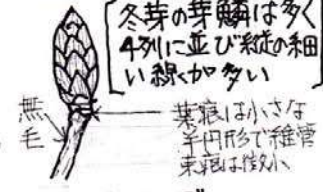 冬芽の芽鱗は多く
4列に並び縦の細
い線が多い
無
毛
葉痕は小さな
半円形で維管
束痕は微小